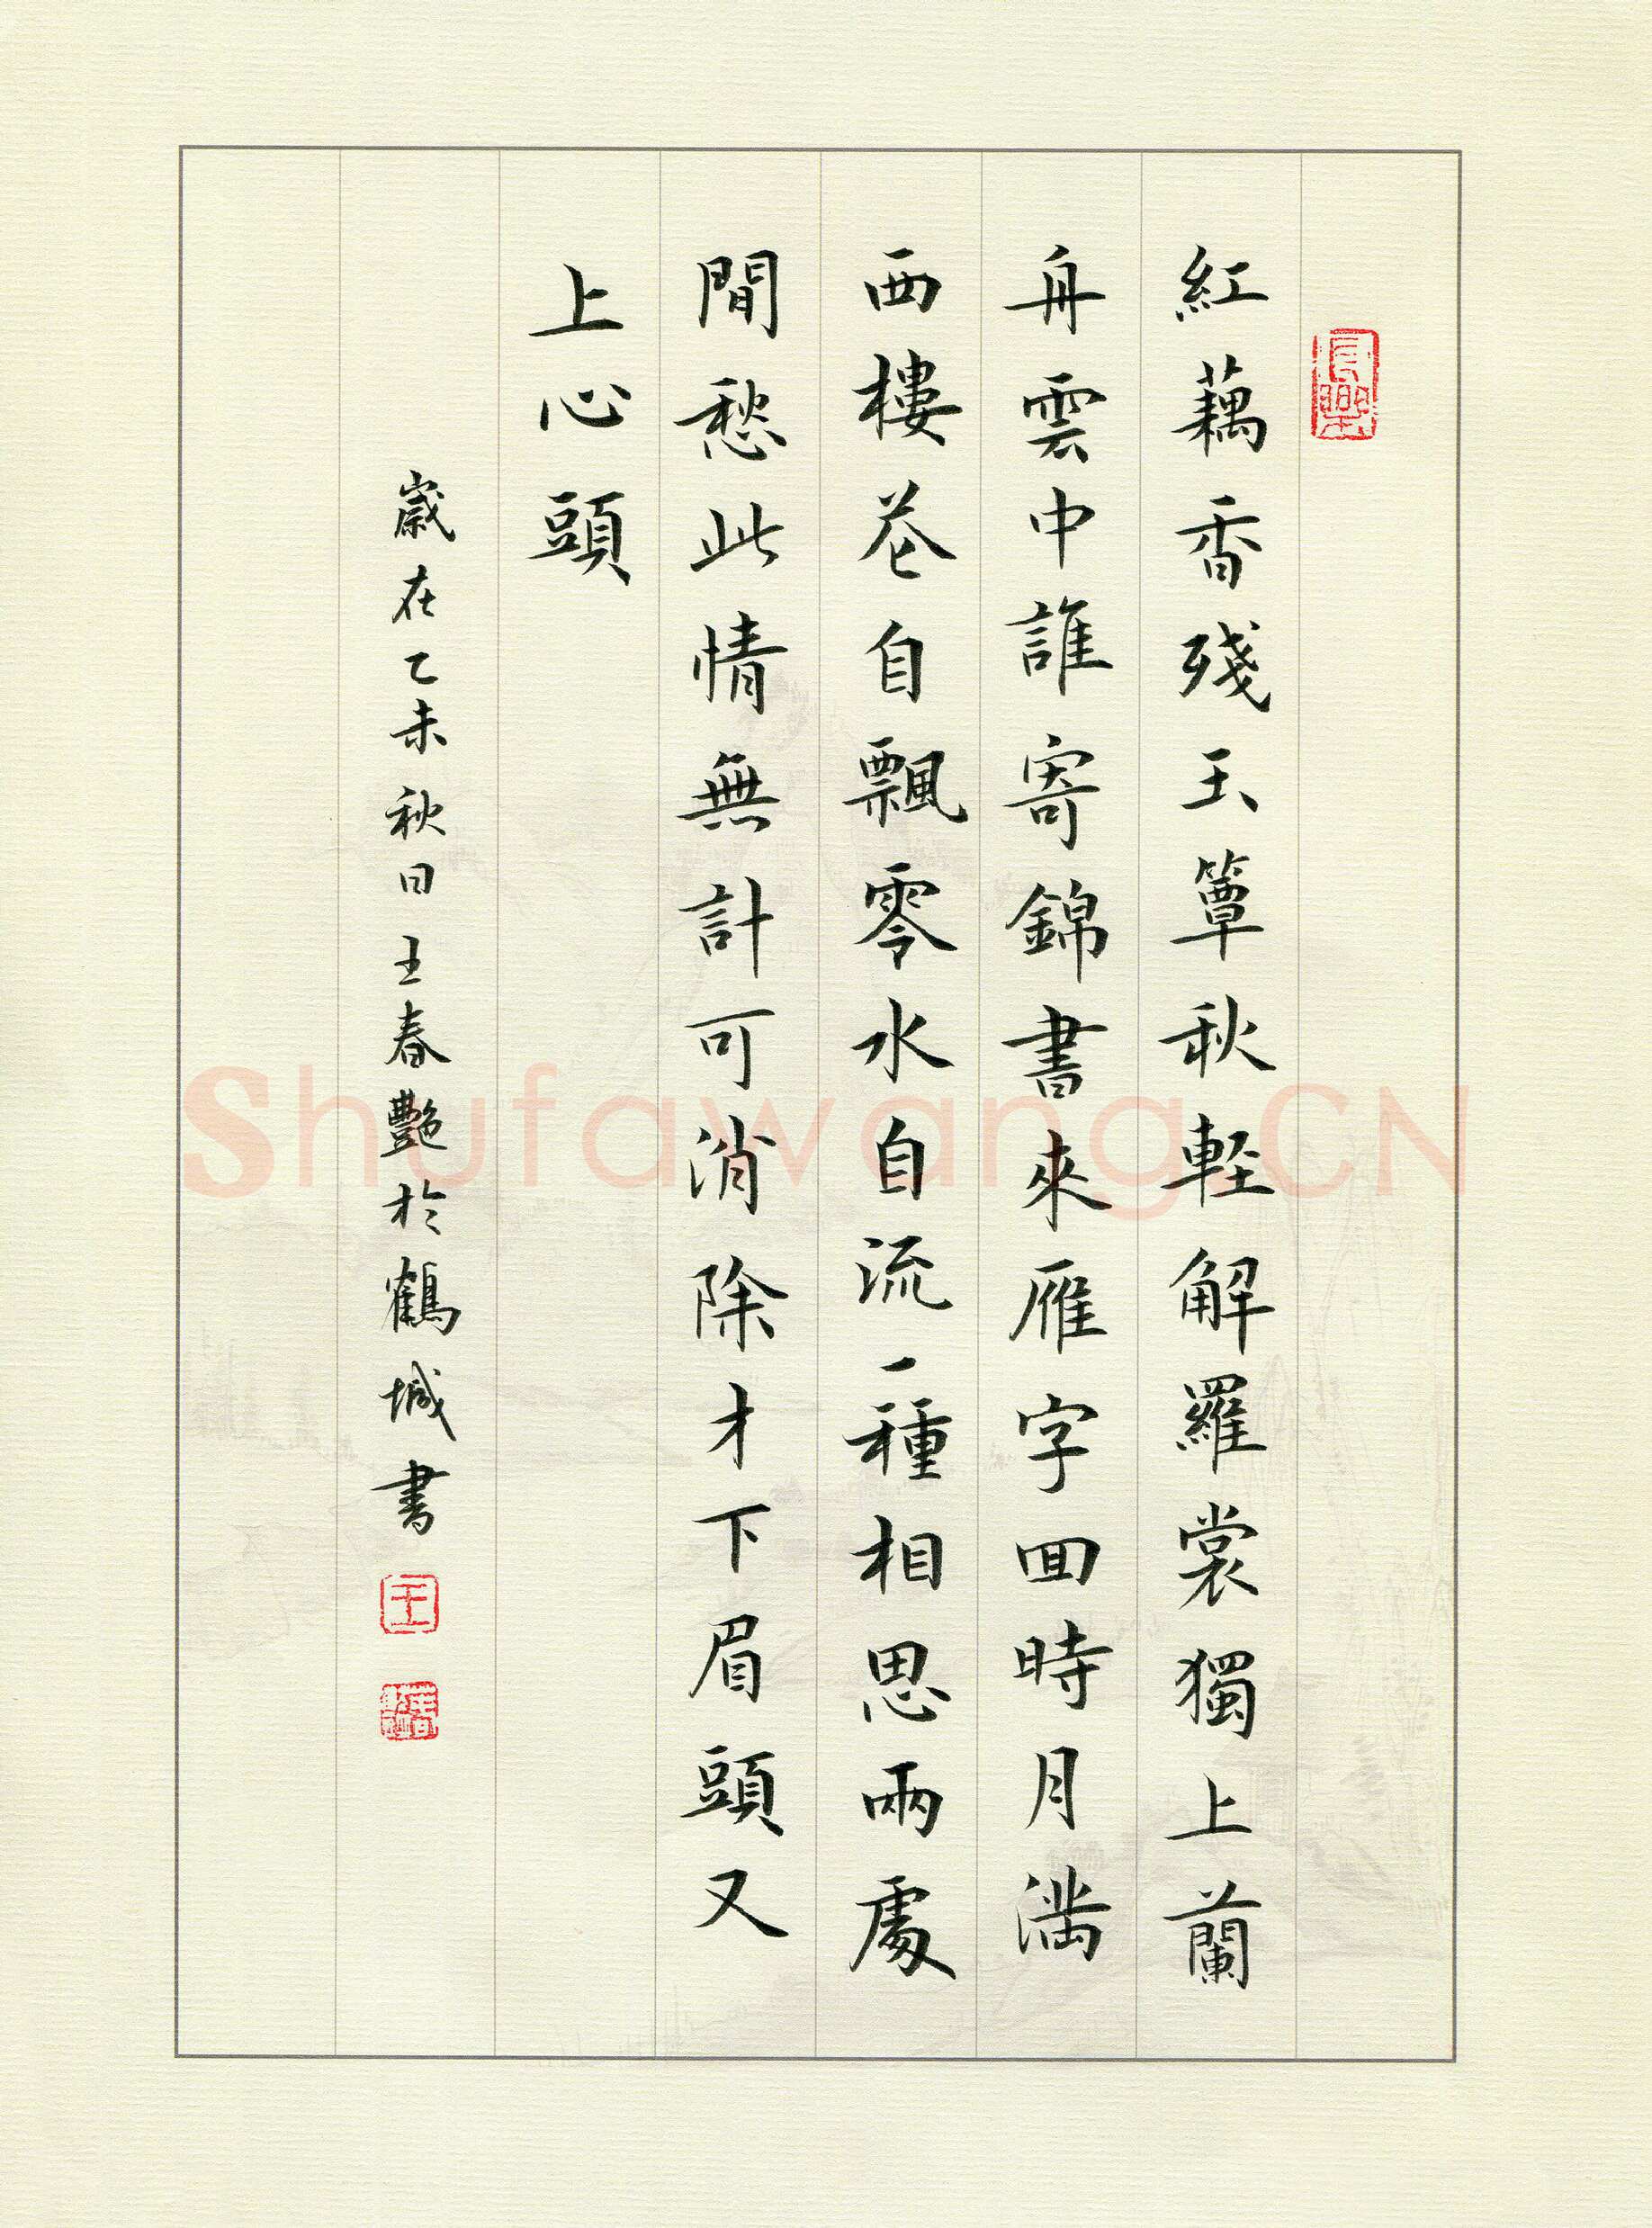 紅藕香殘玉簟秋輕解羅裳獨上蘭
舟雲中誰寄錦書來雁字回時月滿
西樓花自飄零水自流一種相思兩處
閒愁此情無計可消除才下眉頭又
上心頭
歲在乙未秋日王春艷於鶴城書
長樂
王
Shufawang.CN